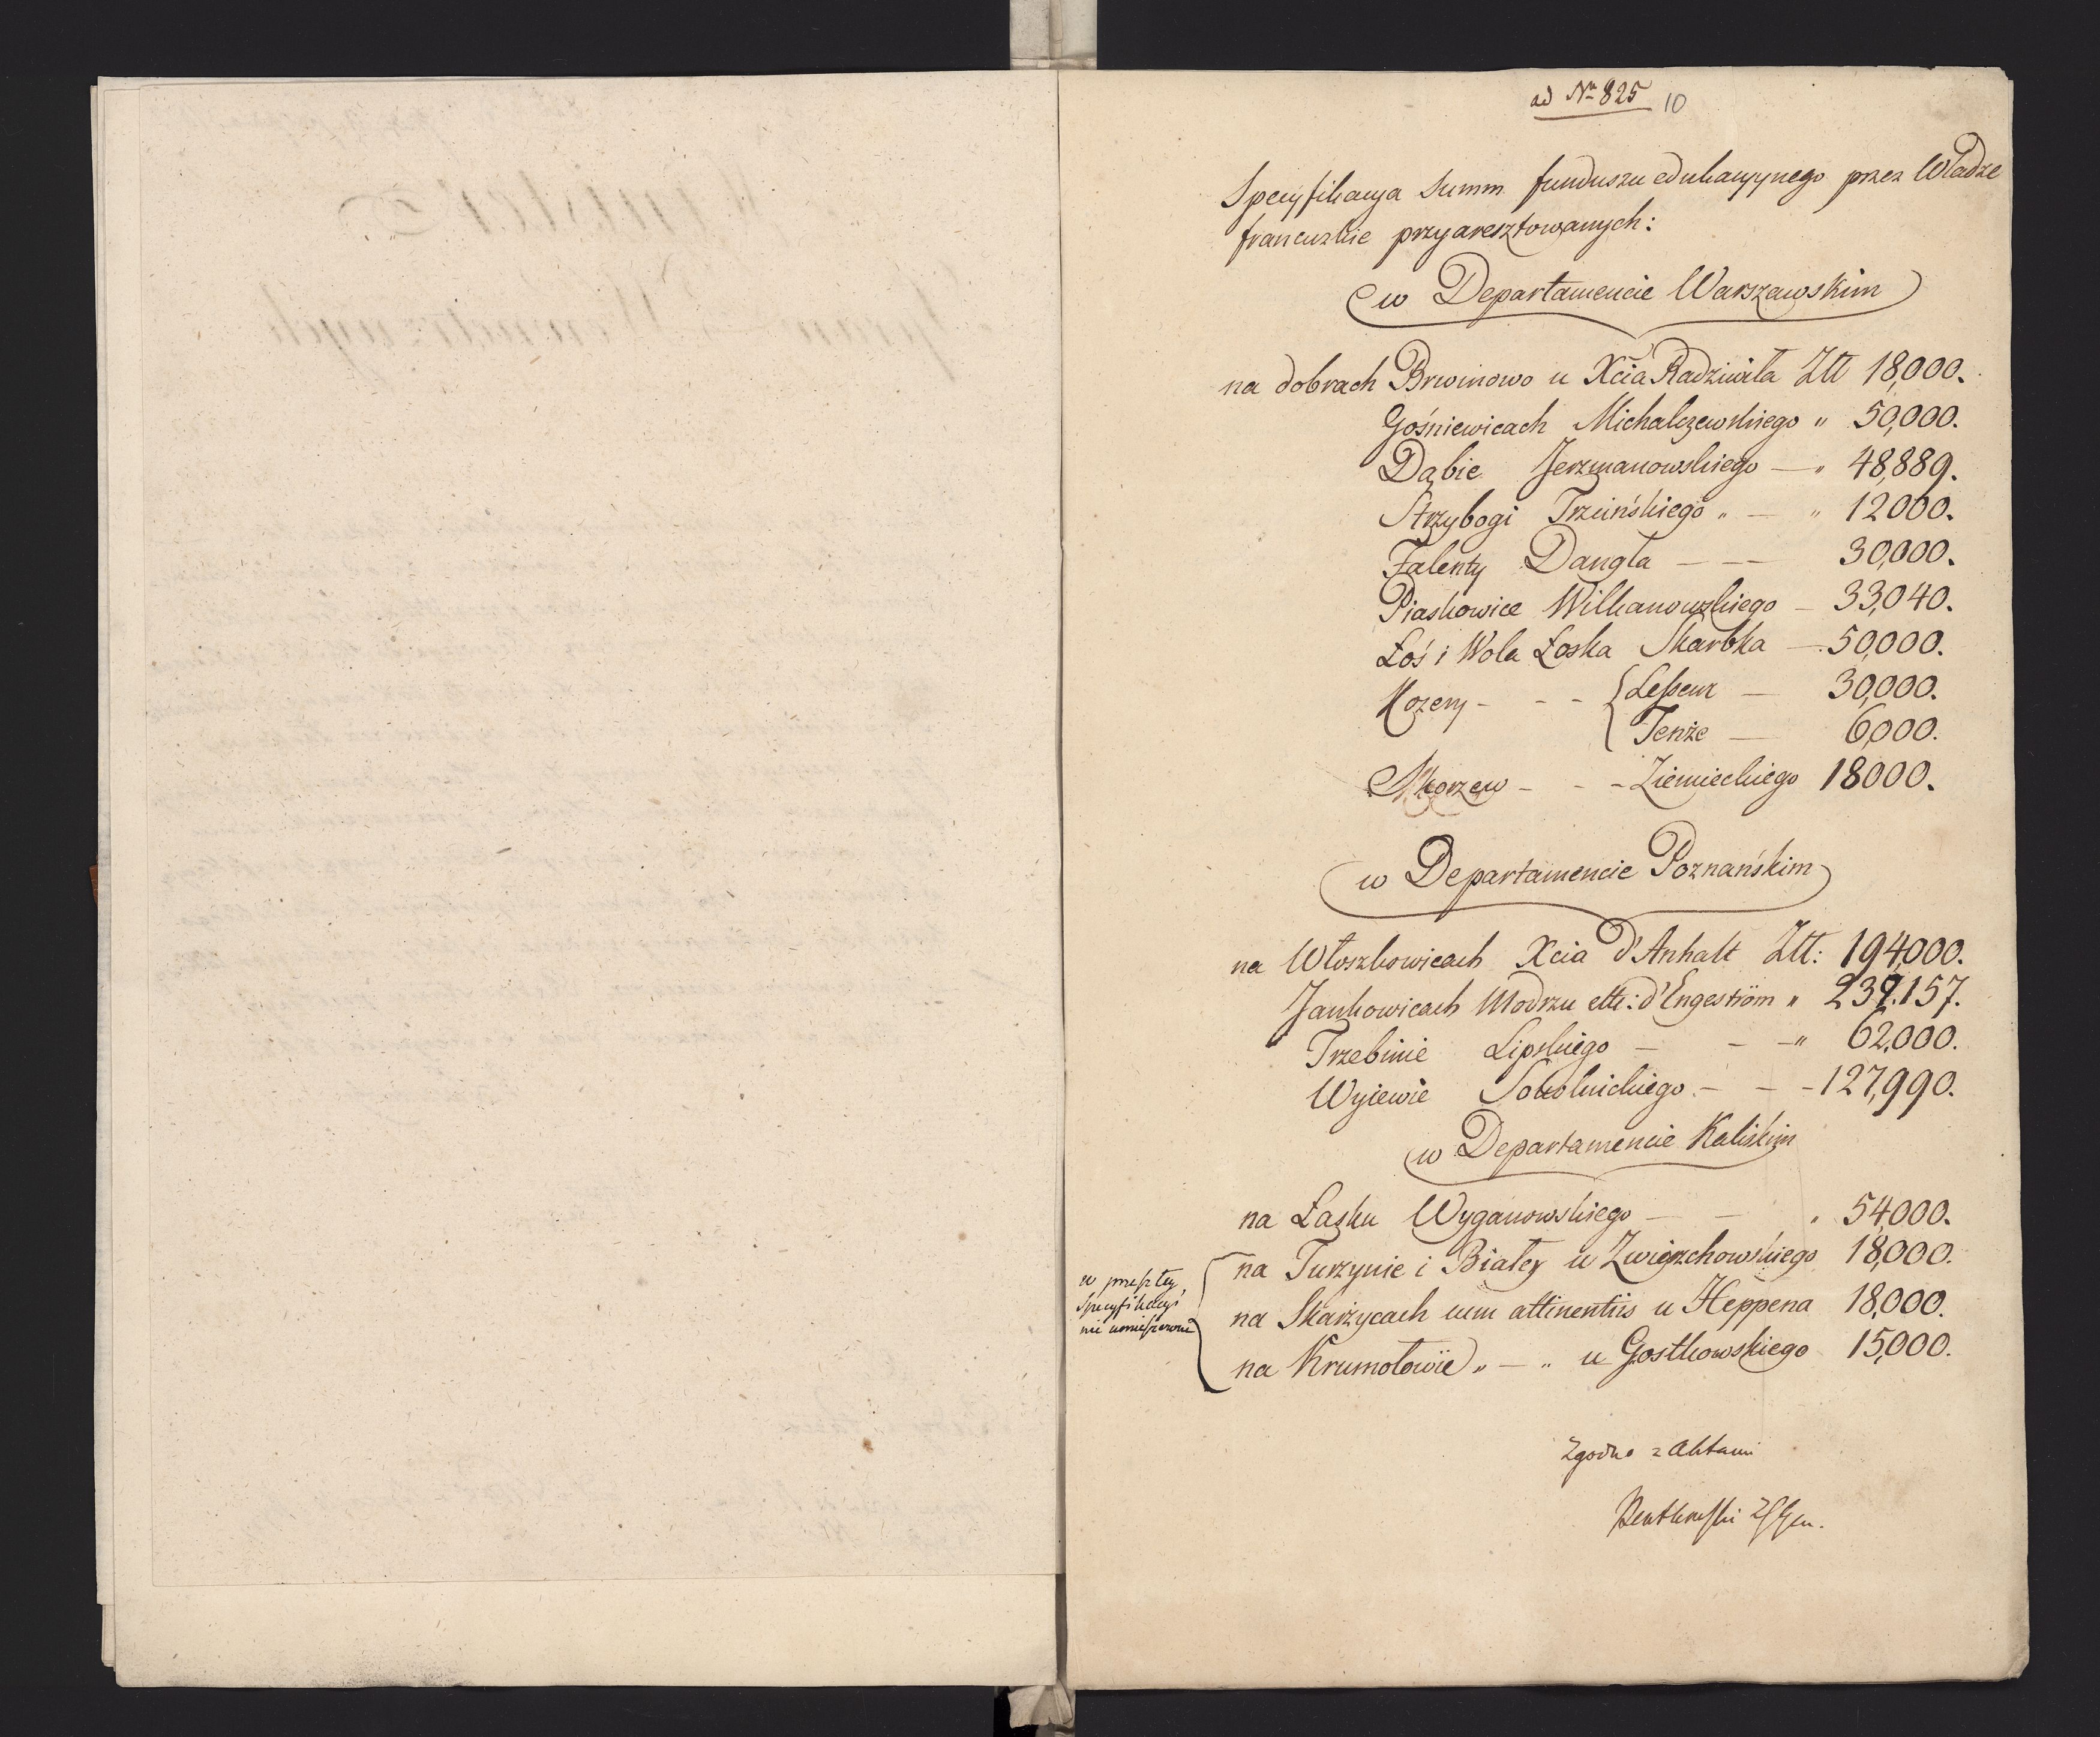 ad Nr 825 10
Specyfikacya Summ funduszu edukacyynego przez Władze
francuzkie przyaresztowanych:
w Departamencie Warszawskim
na dobrach Brwinowo u Xcia Radziwiła Złł 18,000.
Gośniewicach Michalczewskiego " 50,000.
Dąbie Jerzmanowskiego — " 48,889.
Strzybogi Trzcińskiego " — " 12000.
Falenty Dangla — — — 30,000.
Piaskowice Wilkanowskiego — 33,040.
Łoś i Wola Łoska Skarbka — 50,000.
Kozery - - - Lesseur — 30,000.
Tenże — 6,000.
Skorzew - - - Ziemieckiego 18000.
w Departamencie Poznańskim
na Włoszkowicach Xcia d'Anhalt Złł: 194,000.
Jankowicach Modrzu ett: d'Engeström " 237.157.
Trzebinie Lipskiego — - — " 62,000.
Wyiewie Sokolnickiego - — - 127,990.
w Departamencie Kaliskim
na Łasku Wyganowskiego — — " 54,000.
na Turzynie i Białey u Zwierzchowskiego 18,000.
w przeszłey
Specyfikacyi
nie umieszczone
na Skarżycach cum attinentiis u Heppena 18,000.
na Krumołowie " — " u Gostkowskiego 15,000.
Zgodno z Aktami